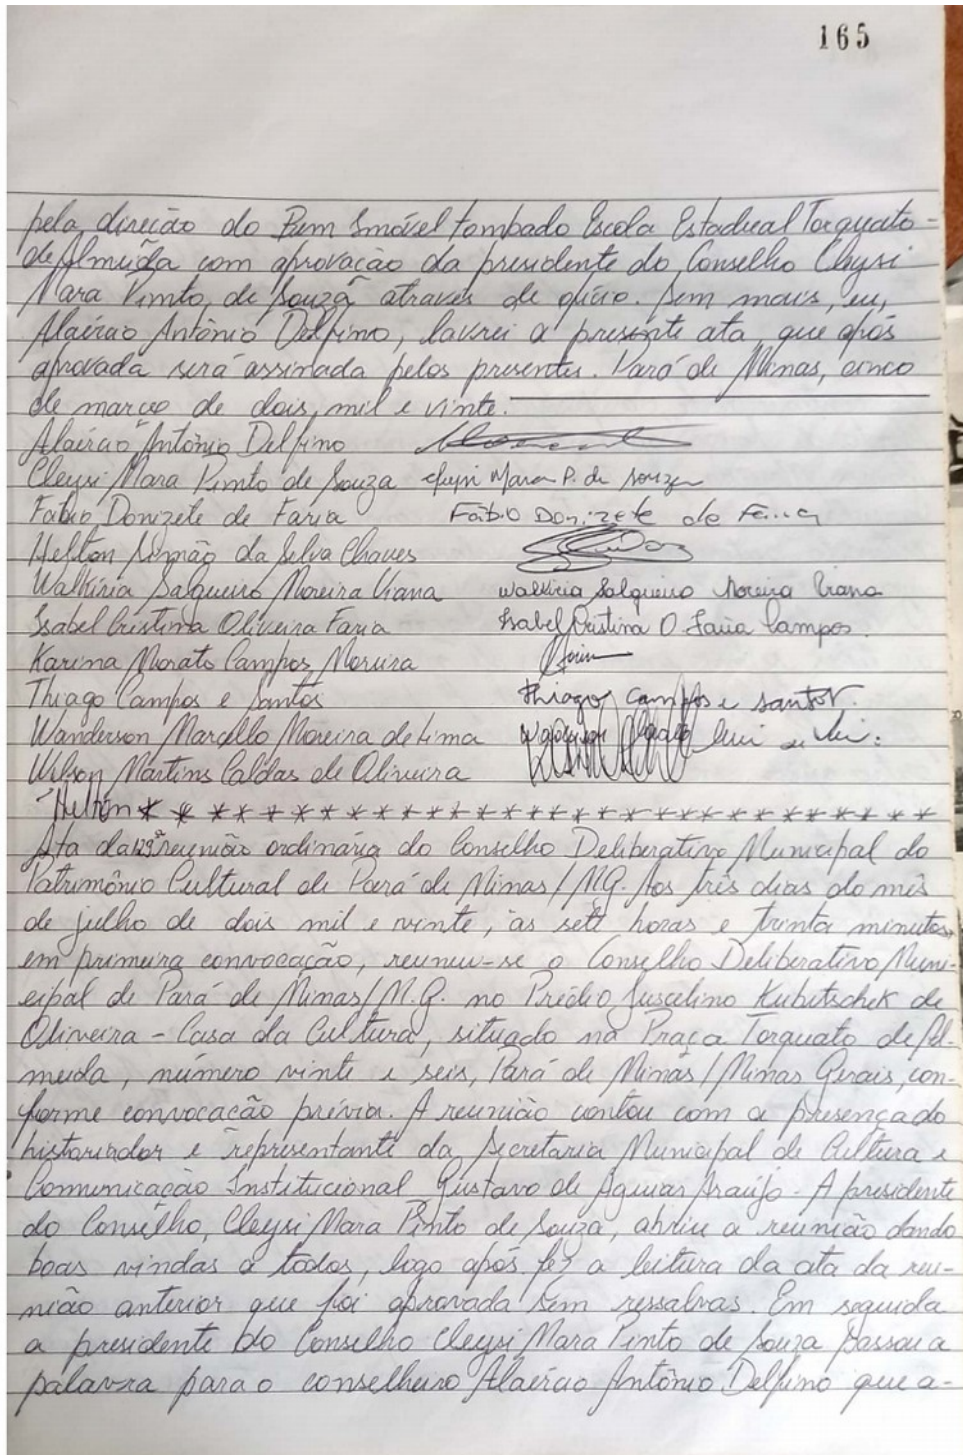 165
pela direção do Bem Imóvel tombado Escola Estadual Torquato
de Almeida com aprovação da presidente do Conselho Cleysi
Mara Pinto de Souza através de ofício. Sem mais, eu,
Alaércio Antônio Delfino, lavrei a presente ata que após
aprovada será assinada pelos presentes. Pará de Minas, cinco
de março de dois mil e vinte.
Alaércio Antônio Delfino
Cleysi Mara Pinto de Souza Cleysi Mara P. de Souza
Fábio Donizete de Faria Fábio Donizete de Faria
Helton Simão da Silva Chaves
Walkíria Salgueiro Moreira Viana Walkiria Salgueiro Moreira Viana
Isabel Cristina Oliveira Faria Isabel Cristina O Faria Campos
Karina Morato Campos Moreira
Thiago Campos e Santos Thiago Campos e Santos.
Wanderson Marcello Moreira de Lima
Wilson Martins Caldas de Oliveira
Helton * * * * * * * * * * * * * * * * * * * * * * * * * * * *
Ata da 129ª reunião ordinária do Conselho Deliberativo Municipal do
Patrimônio Cultural de Pará de Minas/MG. Aos três dias do mês
de julho de dois mil e vinte, às sete horas e trinta minutos,
em primeira convocação, reuniu-se o Conselho Deliberativo Muni-
cipal de Pará de Minas/M.G. no Prédio Juscelino Kubitschek de
Oliveira - Casa da Cultura, situado na Praça Torquato de Al-
meida, número vinte e seis, Pará de Minas/Minas Gerais, con-
forme convocação prévia. A reunião contou com a presença do
historiador e representante da Secretaria Municipal de Cultura e
Comunicação Institucional Gustavo de Aguiar Araújo. A presidente
do Conselho, Cleysi Mara Pinto de Souza, abriu a reunião dando
boas vindas a todos, logo após fez a leitura da ata da reu-
nião anterior que foi aprovada sem ressalvas. Em seguida
a presidente do Conselho Cleysi Mara Pinto de Souza passou a
palavra para o conselheiro Alaércio Antônio Delfino que a-